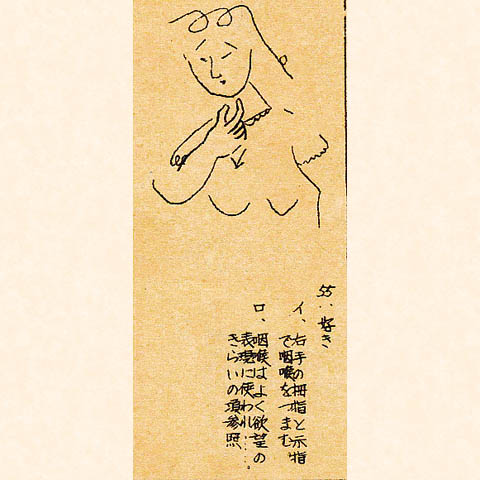 55∴好き
イ、右手の拇指と示指
で咽喉をつまむ
ロ、咽喉はよく欲望の
表現に使われ……。
きらいの項参照